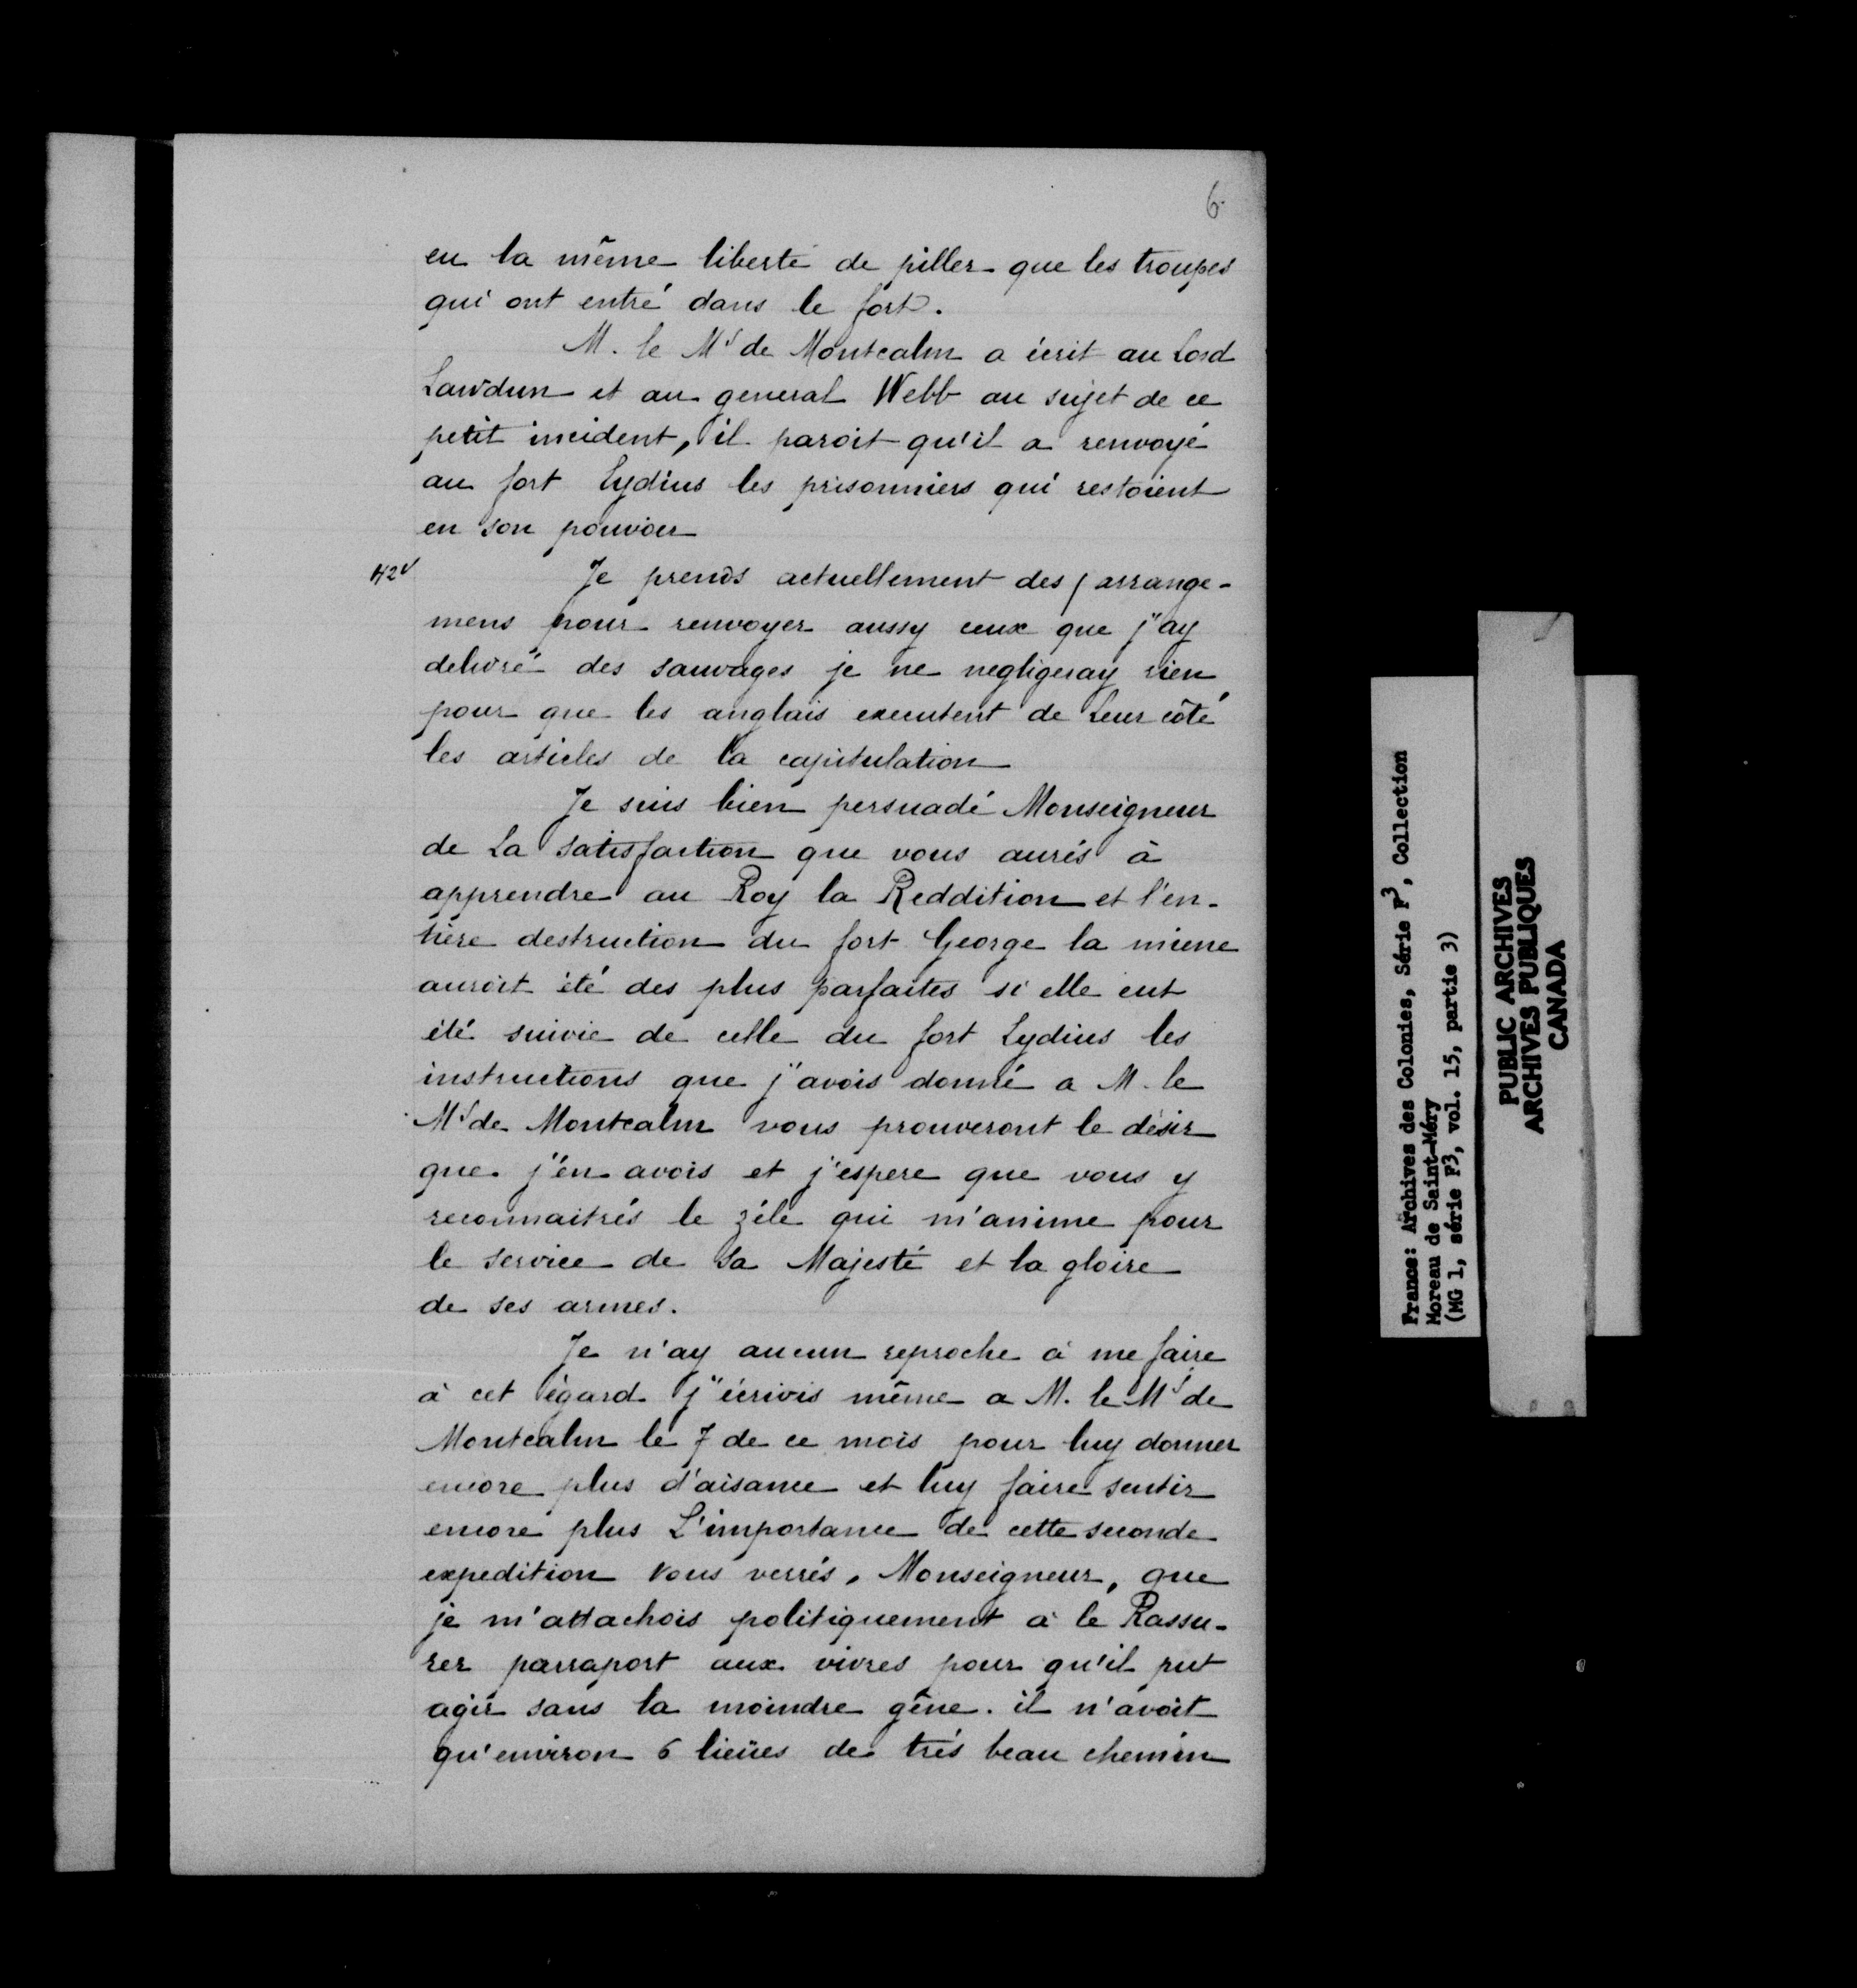 6.
eu la même liberté de piller que les troupes
qui ont entré dans le fort.
M. le Mis de Montcalm a écrit au Lord
Lawdun et au general Webb au sujet de ce
petit incident, il paroit qu'il a renvoyé
au fort Lydius les prisonniers qui restoient
en son pouvoir
42v
Je prends actuellement des / arrange-
mens pour renvoyer aussy ceux que j'ay
delivré des sauvages je ne negligeray rien
pour que les anglais executent de Leur côté
les articles de la capitulation
Je suis bien persuadé Monseigneur
de La satisfaction que vous aurés à
apprendre au Roy la Reddition et l'en-
tière destruction du fort George la miene
auroit été des plus parfaites si elle eut
été suivie de celle du fort Lydius les
instructions que j'avois donné a M. le
Mis de Montcalm vous prouveront le désir
que j'en avois et j'espere que vous y
reconnaitrés le zéle qui m'anime pour
le service de Sa Majesté et la gloire
de ses armes.
Je n'ay aucun reproche à me faire
à cet égard j'écrivis même a M. le Mis de
Montcalm le 7 de ce mois pour luy donner
encore plus d'aisance et luy faire sentir
encore plus L'importance de cette seconde
expedition Vous verrés, Monseigneur, que
je m'attachois politiquement à le Rassu-
rer parraport aux vivres pour qu'il put
agir sans la moindre gêne. il n'avoit
qu'environ 6 lieües de trés beau chemin
France: Archives des Colonies, Série F3, Collection
Moreau de Saint-Méry
(MG 1, série F3, vol. 15, partie 3)
PUBLIC ARCHIVES
ARCHIVES PUBLIQUES
CANADA